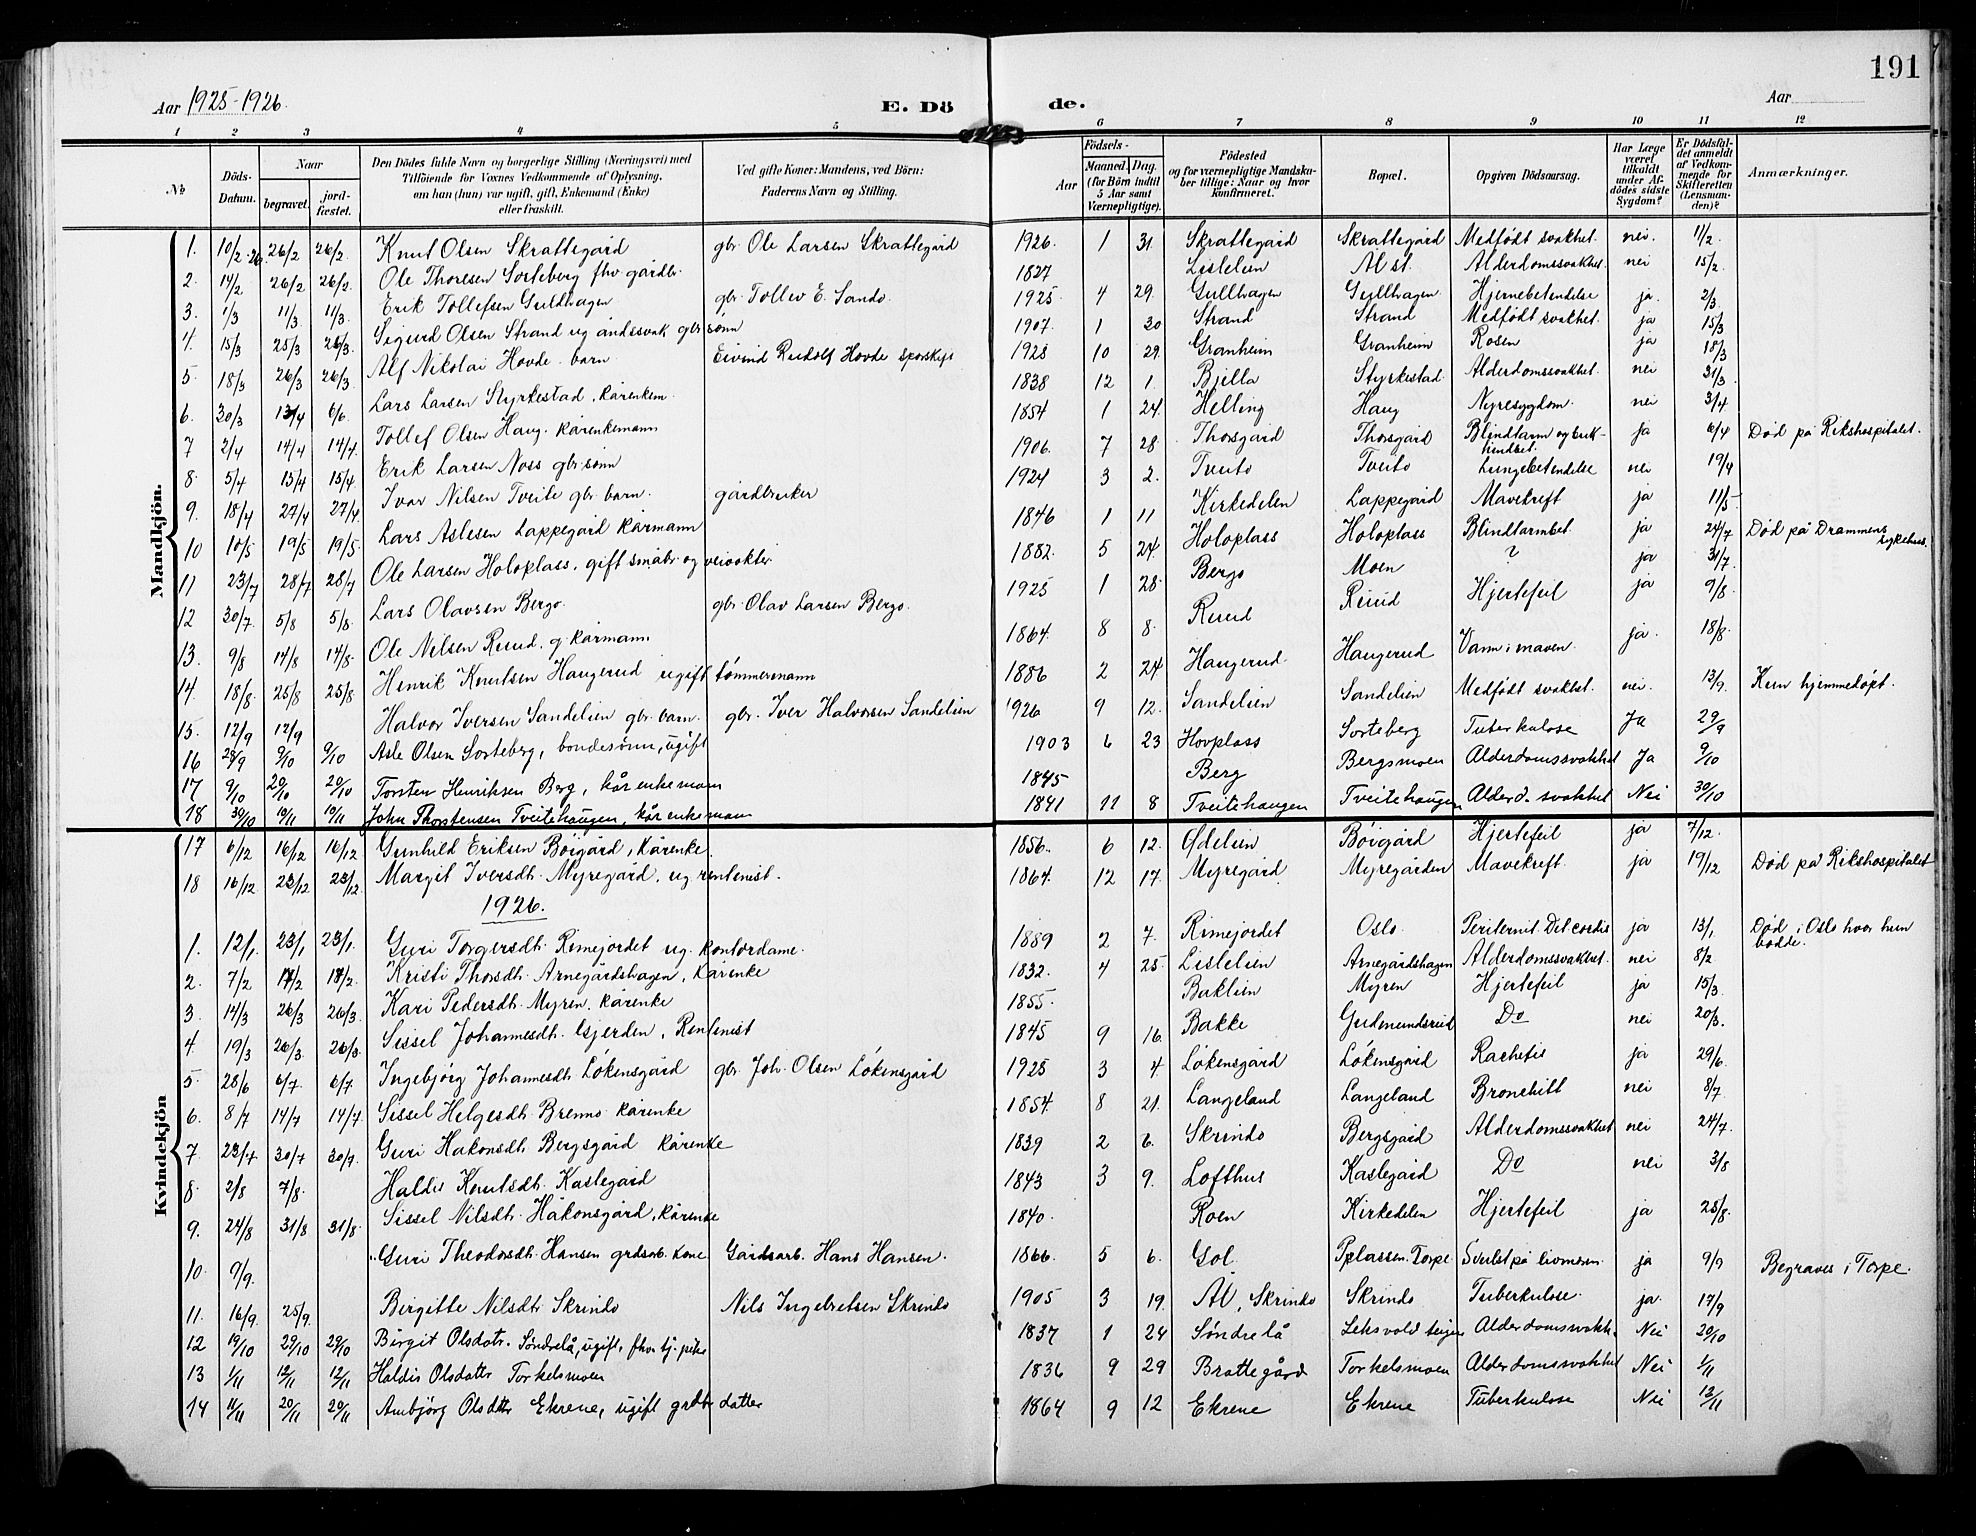 191
Aar 1925-1926. E. Dö de. Aar
1 2 3 4 5 6 7 8 9 10 11 12
No Döds-Datum. Naar begravet. jordfæstet. Den Dödes fulde Navn og borgerlige Stilling (Næringsvei) med Tilföiende for Voxnes Vedkommende af Oplysning, om han (hun) var ugift, gift, Enkemand (Enke) eller fraskilt. Ved gifte Koner: Mandens, ved Börn: Faderens Navn og Stilling. Födsels- Aar Maaned. Dag. (for Börn indtil 5 Aar samt Værnepligtige). Födested og for værnepligtige Mandskaber tillige: Naar og hvor konfirmeret. Bopæl. Opgiven Dödsaarsag. Har Læge været tilkaldt under Afdödes sidste Sygdom? Er Dödsfaldet anmeldt af Vedkommende for Skifteretten (Lensmanden)? Anmærkninger.
Mandkjön.
1. 10/2 26. 26/2 26/2. Knut Olsen Skrattegård gbr. Ole Larsen Skrattegård 1926. 1 31. Skrattegård Skrattegård Medfödt svakhet. nei. 11/2.
2. 14/2 26/2 26/2. Ole Thoresen Sorteberg fhv gårdbr. 1827 Lislelien Al st. Alderdomssvakhet. nei 15/2.
3. 1/3 11/3 11/3. Erik Tollefsen Gullhagen gbr. Tollev E. Sando. 1925. 4 29. Gullhagen Gullhagen Hjernebetendelse ja. 2/3.
4. 15/3 25/3 25/3. Sigurd Olsen Strand ug åndssvak gbr sönn 1907. 1 30 Strand Strand Medfödt svakhet. ja 15/3
5. 18/3 26/3 26/3. Alf Nikolai Hovde. barn Eivind Rudolf Hovde sporskift 1925 10 29. Granheim Granheim Rosen ja 18/3
6. 30/3 13/4 6/6. Lars Larsen Styrkestad, kårenkem. 1838 12 1. Bjella Styrkestad. Alderdomssvakhet. nei 31/3.
7 2/4 14/4 14/4. Tollef Olsen Haug. kårenkemann 1854 1 24. Helling Haug Nyresygdom. nei 3/4
8 5/4 15/4 15/4 Erik Larsen Noss gbr. sönn 1906. 7 28. Thorsgård Thorsgård Blindtarm og bukhindbet. ja 6/4 Död på Rikshospitalet.
9. 18/4 27/4 27/4. Ivar Nilsen Tveito gbr. barn. gårdbruker 1924 3 2. Tveito Tveito Lungebetendelse nei 19/4
10 10/5 19/5 19/5. Lars Aslesen Lappegård kårmann 1846 1 11 Kirkedelen Lappegård Mavekreft ja 11/5
11 23/7 28/7 28/7 Ole Larsen Holoplass, gift småbr. og veivokter 1882. 5 24. Holoplass Holoplass Blindtarmbet. ja 24/7 Död på Drammens sykehus.
12 30/7. 5/8 5/8. Lars Olavsen Bergo. gbr. Olav Larsen Bergo. 1925 1 28. Bergo Moen ? ja 31/7.
13. 9/8 14/8 14/8. Ole Nilsen Ruud. g. kårmann. 1864. 8 8. Ruud Ruud Hjertefeil ja 9/8.
14. 18/8. 25/8 25/8 Henrik Knutsen Haugerud ugift tömmermann 1886 2 24 Haugerud. Haugerud Vann i maven. ja. 18/8.
15. 12/9 17/9 Halvor Iversen Sandelien gbr. barn. gbr. Iver Halvorsen Sandelien 1926 9 12. Sandelien Sandelien Medfödt svakhet. nei. 13/9. Kun hjemmedöpt.
16 28/9 9/10 9/10 Asle Olsen Sorteberg, bondesönn, ugift 1903 6 23 Hovplass Sorteberg Tuberkulose Ja 29/9
17 9/10 20/10 20/10 Torsten Henriksen Berg, kårenkemann 1845 Berg Bergsmoen Alderdomssvakhet Ja 9/10
18 30/10 10/11 10/11 John Thorstensen Tveitehaugen, kårenkemann 1841 11 8 Tveitehaugen Tveitehaugen Alderd. svakhet Nei 30/10
Kvindekjön
17 6/12 16/12 16/12 Gunhild Eriksen Böigård, kårenke. 1856. 6 12. Ödelien Böigård Hjertefeil ja 7/12.
18 16/12 23/12 23/12. Margit Iversdt. Myregård, ug rentenist. 1864. 12 17. Myregård Myregården Mavekreft. ja 19/12 Död på Rikshospitalet
1926.
1. 12/1. 23/1 23/1. Guri Torgersdt. Rimejordet ug. kontordame. 1889 2 7. Rimejordet Oslo. Peritonit. Det. cordis ja 13/1 Död i Oslo hvor hun bodde.
2. 7/2 17/2 17/2. Kristi Thorsdt. Arnegårdshagen, kårenke 1832. 4 25. Lislelien Arnegårdshagen Alderdomssvakhet. nei 8/2
3. 14/3 26/3 26/3. Kari Pedersdt. Myren. kårenke 1855. Baklien Myren Hjertefeil ja 15/3.
4. 19/3 26/3. 26/3. Sissel Johannesdt. Gjerden, Rentenist 1845 9 16. Bakke Gudmundsrud Do nei 20/3.
5. 28/6 6/7. 6/7. Ingebjörg Johannesdt. Lökensgård gbr. Joh. Olsen Lökensgård 1925 3 4. Lökensgård Lökensgård Rachetis ja 29/6.
6. 8/7 14/7 14/7 Sissel Helgesdt. Brenno kårenke 1854. 8 21. Langeland Langeland Bronchitt nei 8/7.
7. 23/7 30/7 30/7. Guri Hakonsdt. Bergsgård kårenke 1839 2 6. Skrindo Bergsgård Alderdomssvakhet nei 24/7.
8. 2/8 7/8. Haldis Knutsdt. Kaslegård 1843 3 9. Lofthus Kaslegård Do nei 3/8
9. 24/8 31/8 31/8. Sissel Nilsdt. Håkonsgård, kårenke 1840. Roen Kirkedelen Hjertefeil ja 25/8.
10. 9/9. Guri Theodorsdt. Hansen grdsarb. kone Gårdsarb. Hans Hansen. 1866 5 6. Gol Pplassen. Torpe. Svulst på livmoren. ja 9/9 Begraves i Torpe.
11. 16/9. 25/9. Birgitte Nilsdt. Skrindo Nils Ingebretsen Skrindo 1905 3 19. Ål, Skrindo Skrindo Tuberkulose. ja. 17/9
12 19/10 29/10 29/10 Birgit Olsdotr. Söndrelå, ugift, fhv. tj. pike 1837 1 24 Söndrelå Leksvold teigen Alderdomssvakh. Nei 20/10
13 1/11 12/11 12/11 Haldis Olsdatter Torkelsmoen 1836 9 29 Brattegård Torkelsmoen Alderdomssvakhet Nei 1/11
14 11/11 20/11 20/11 Ambjörg Olsdtr Ekrene, ugift grdbr datter 1864 9 12 Ekrene Ekrene Tuberkulose Nei 12/11